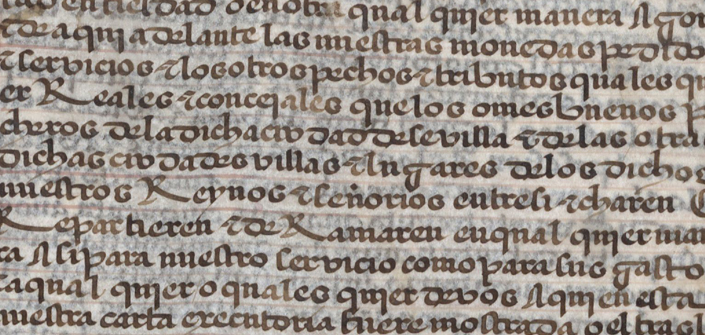 qual quier manera Agor
τ de aqui adelante las nuestras monedas pedido
τ seruicios τ los otros pechos τ tributos quales qu
er Reales τ conceiales que los omes buenos p
cheros de la dicha ciudad de seuilla τ de las otra
dichas ciudades villas τ lugares de los dichos
nuestros Reynos τ señorios entre si τ charen
Repartieren τ de Ramaren en qual quier man
ra Asi para nuestro seruicio como para sus gasto
a qual quier o quales quier de vos A quien esta
nuestra carta executoria fuere mostrada